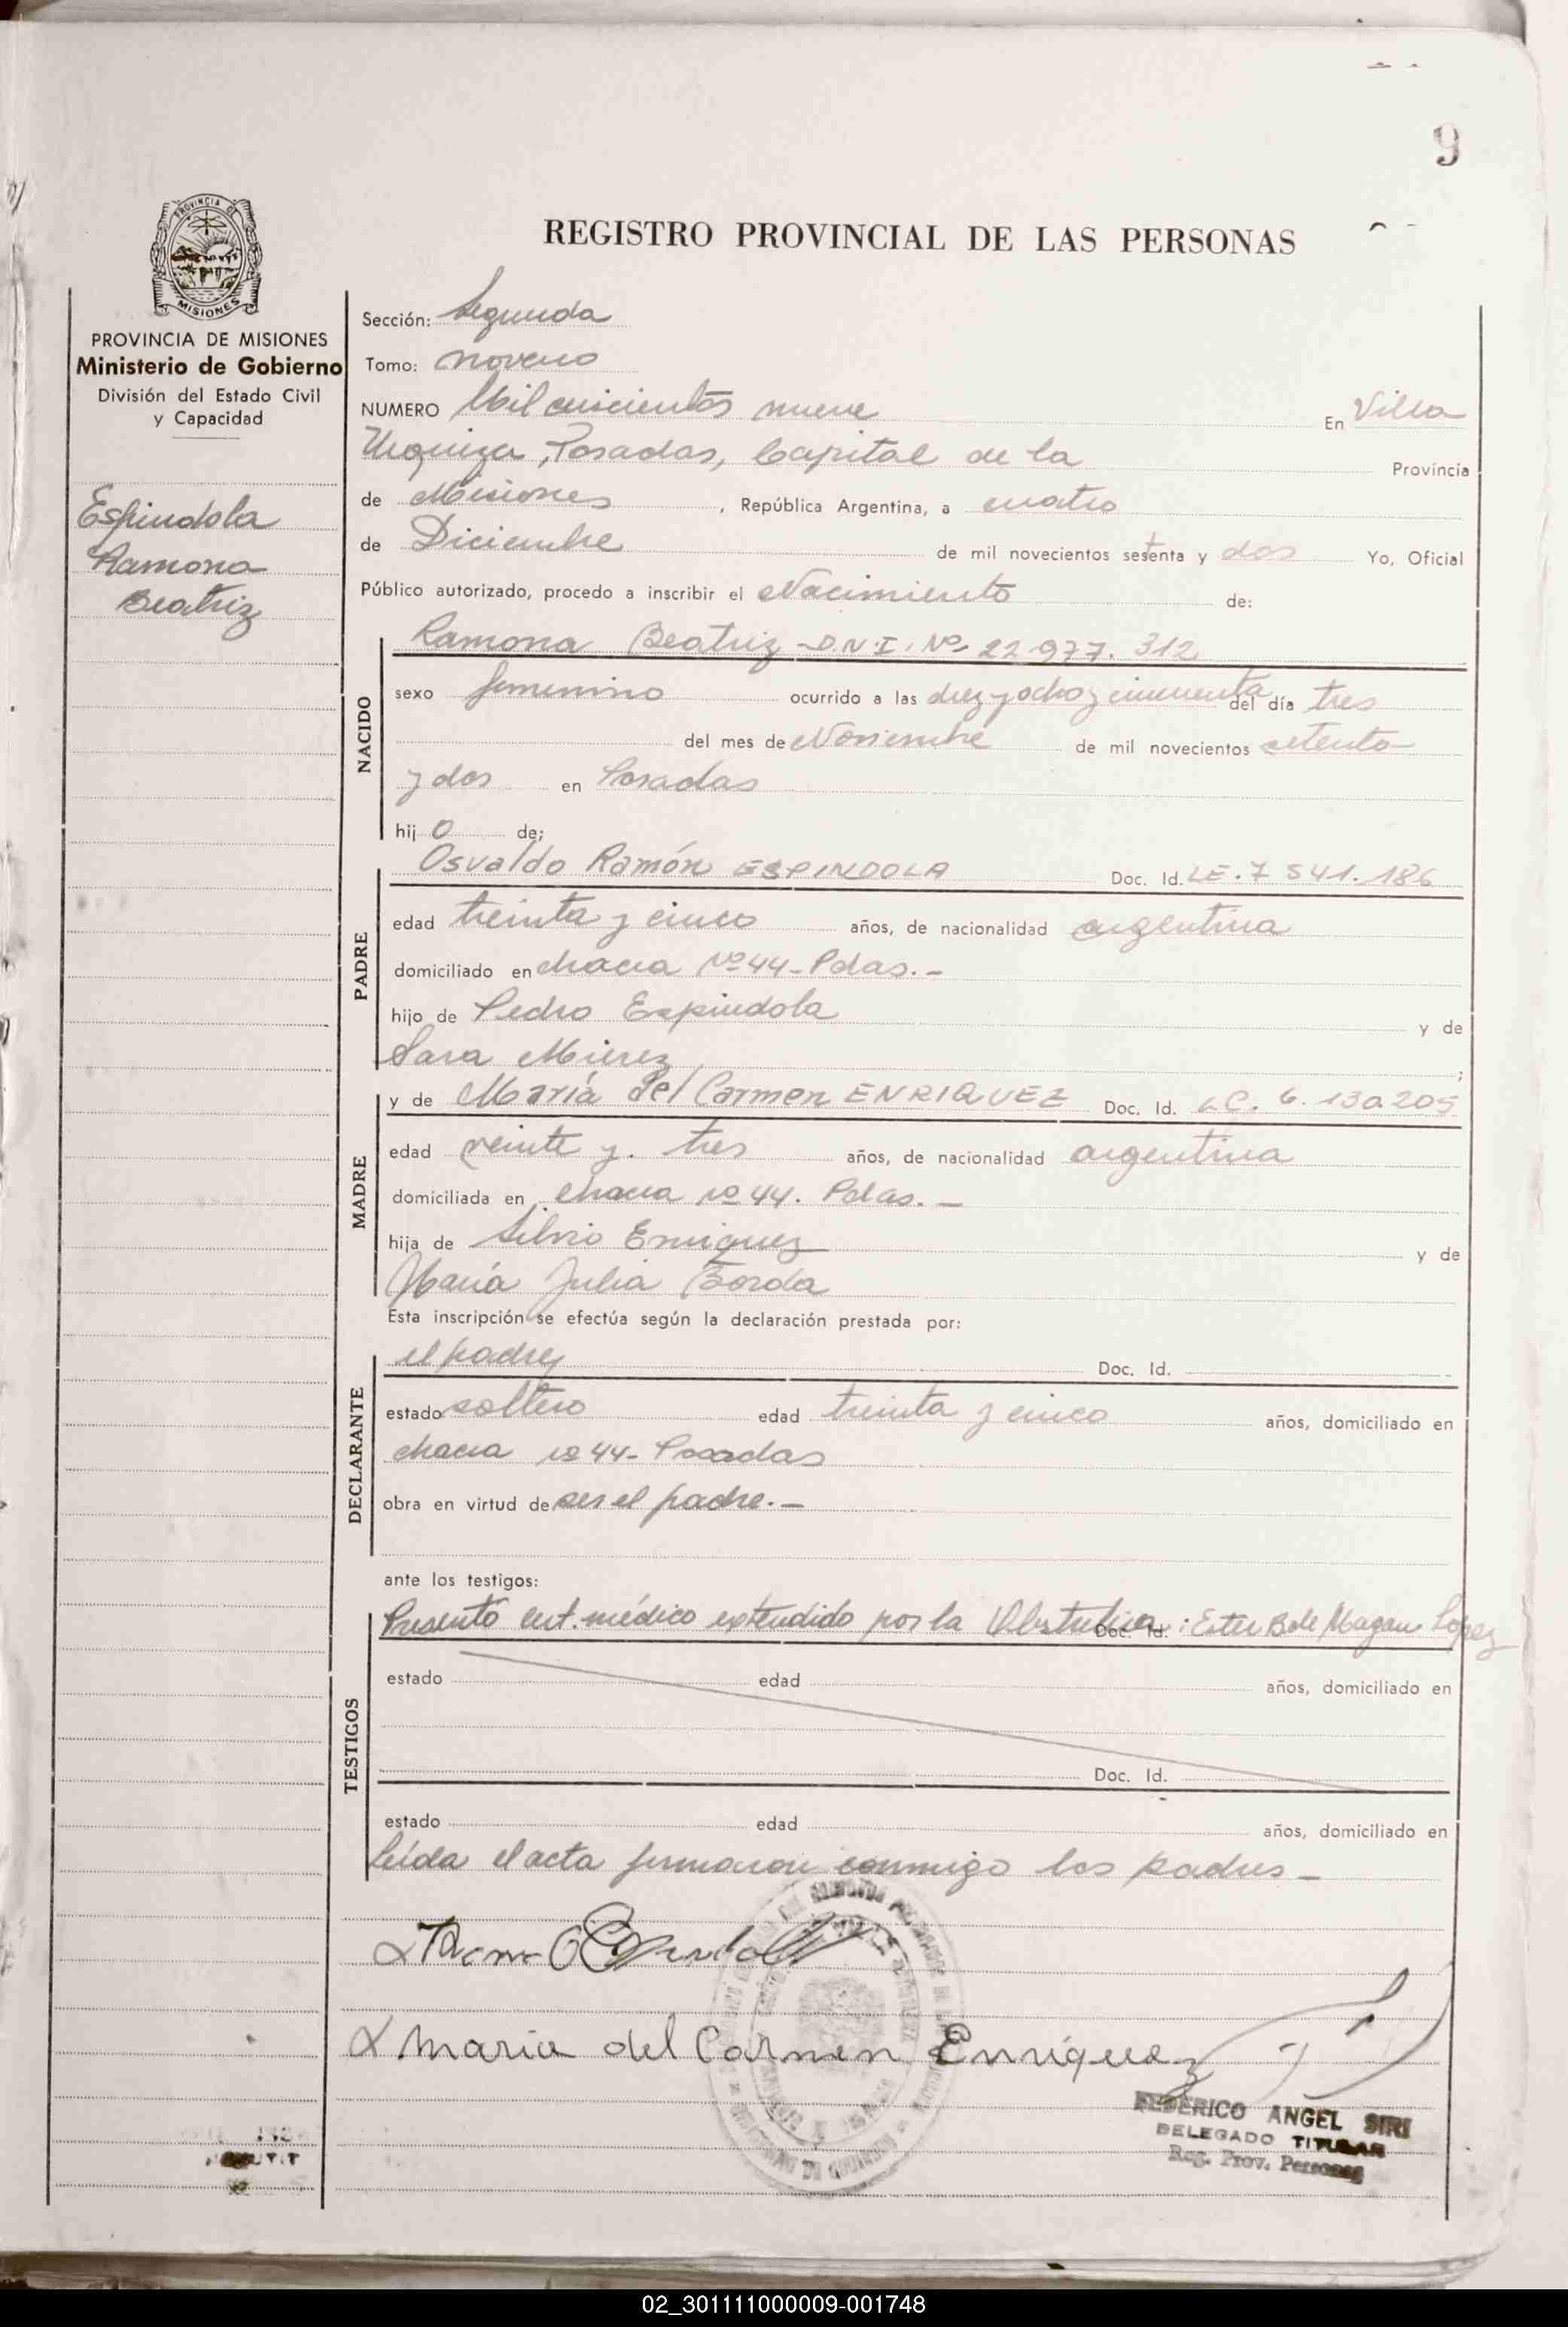 9
PROVINCIA DE
MISIONES
REGISTRO PROVINCIAL DE LAS PERSONAS
PROVINCIA DE MISIONES
Ministerio de Gobierno
División del Estado Civil
y Capacidad
Espindola
Ramona
Beatriz
Sección: Segunda
Tomo: noveno
NUMERO Mil nueve En Villa
Urquiza, Posadas, Capital de la Provincia
de Misiones, República Argentina, a cuatro
de Diciembre de mil novecientos setenta y dos Yo, Oficial
Público autorizado, procedo a inscribir el Nacimiento de:
NACIDO
Ramona Beatriz - D.N.I. Nº 22.977.312
sexo femenino ocurrido a las diez y ocho y cincuenta del día tres
del mes de Noviembre de mil novecientos setenta
y dos en Posadas
hij o de;
PADRE
Osvaldo Ramón ESPINDOLA Doc. Id. LE. 7 541.186
edad treinta y cinco años, de nacionalidad argentina
domiciliado en chacra Nº 44 - Pdas. -
hijo de Pedro Espindola y de
Sara Mierez ;
MADRE
y de María del Carmen ENRIQUEZ Doc. Id. LC. 6.130205
edad veinte y. tres años, de nacionalidad argentina
domiciliada en chacra nº 44. Pdas. -
hija de Silvio Enriquez y de
María Julia Borda
Esta inscripción se efectúa según la declaración prestada por:
DECLARANTE
el padre Doc. Id.
estado soltero edad treinta y cinco años, domiciliado en
chacra nº 44 - Posadas
obra en virtud de ser el padre. -
ante los testigos:
TESTIGOS
Presentó cert. médico extendido por la Obstetrica: Ester B de Magan Lopez Doc. Id.
estado edad años, domiciliado en
Doc. Id.
estado edad años, domiciliado en
Leída el acta firmaron conmigo los padres -
Maria del Carmen Enriquez
FEDERICO ANGEL SIRI
DELEGADO TITULAR
Reg. Prov. Personas
02_301111000009-001748